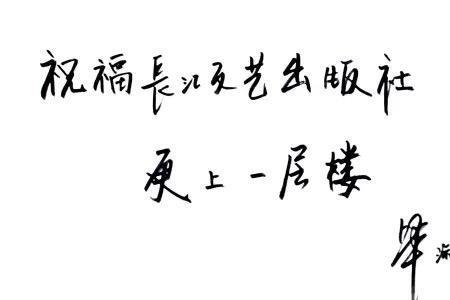 祝福長江文艺出版社
更上一层楼
畢